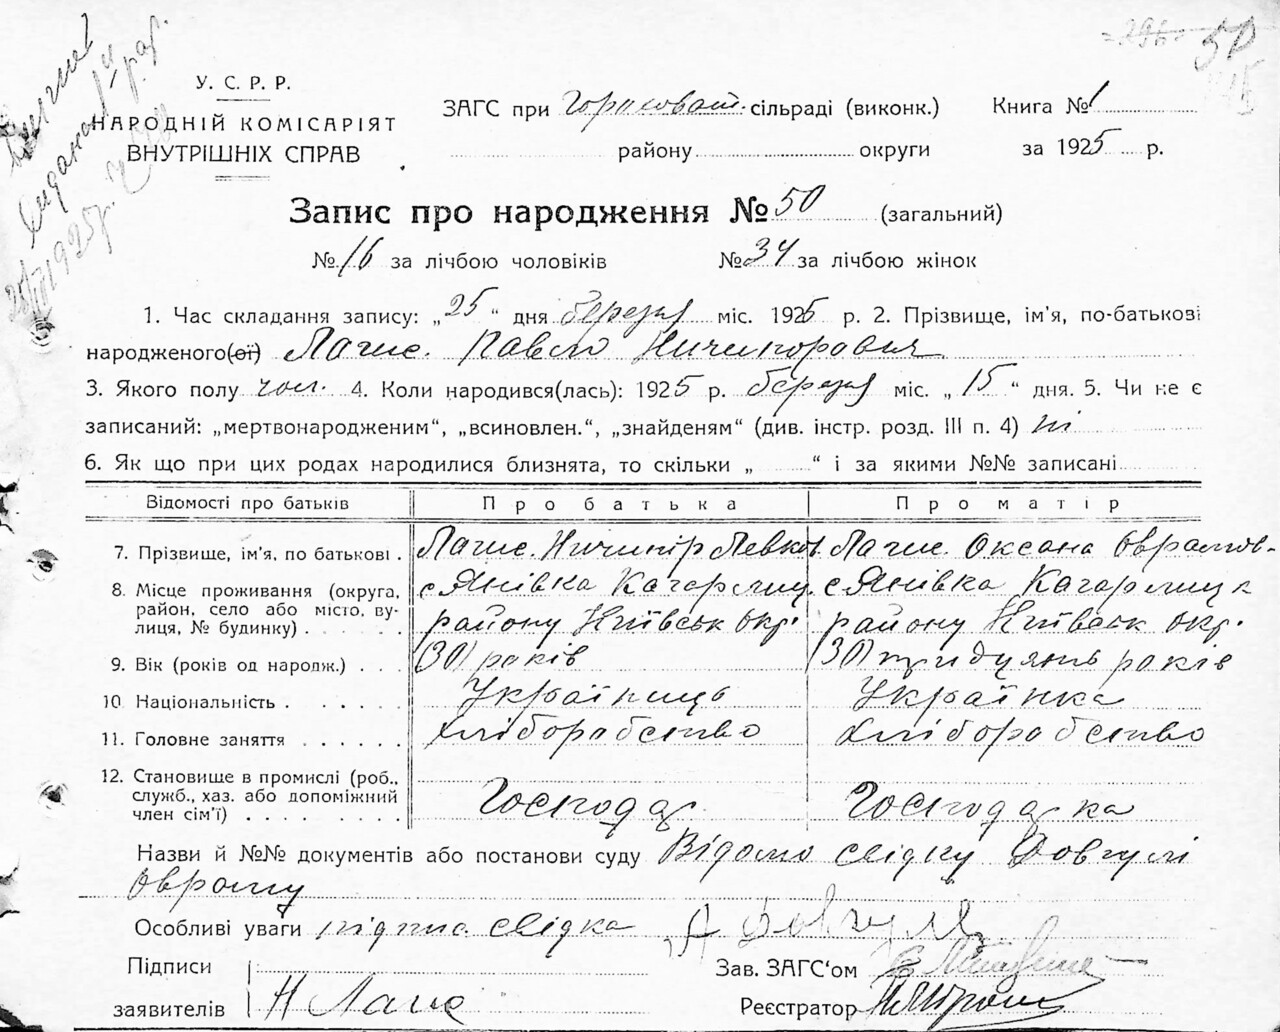 50
У. С. Р. Р.
НАРОДНІЙ КОМІСАРІЯТ
ВНУТРІШНІХ СПРАВ
ЗАГС при Гороховат. сільраді (виконк.) Книга № 1
району округи за 1925 р.
Запис про народження № 50 (загальний)
№ 16 за лічбою чоловіків № 34 за лічбою жінок
1. Час складання запису: „25“ дня березня міс. 1925 р. 2. Прізвище, ім'я, по-батькові
народженого(ої) Лагис. Павло Ничипорович
3. Якого полу чол. 4. Коли народився(лась): 1925 р. березня міс. „15“ дня. 5. Чи не є
записаний: „мертвонародженим“, „всиновлен.“, „знайденям“ (див. інстр. розд. III п. 4) ні
6. Як що при цих родах народилися близнята, то скільки „ “ і за якими №№ записані
Відомості про батьків Про батька Про матір
7. Прізвище, ім'я, по батькові . Ничипір Левков. Оксана Оврамов-
8. Місце проживання (округа, с Янівка Кагарлиц. с Янівка Кагарлицк
район, село або місто, ву-
лиця, № будинку) . району Київськ окр. району Київськ окр.
9. Вік (років од народж.) . . . (30) років (30) тридцять років
10 Національність . Українець Українка
11. Головне заняття . хліборобство хліборобство
12. Становище в промислі (роб.,
служб., хаз. або допоміжний Господар Господарка
член сім'ї) .
Назви й №№ документів або постанови суду Відомо свідку Довгулі
Овраму
Особливі уваги підпис свідка А Довгуля
Підписи Зав. ЗАГС'ом
заявителів Н Реєстратор